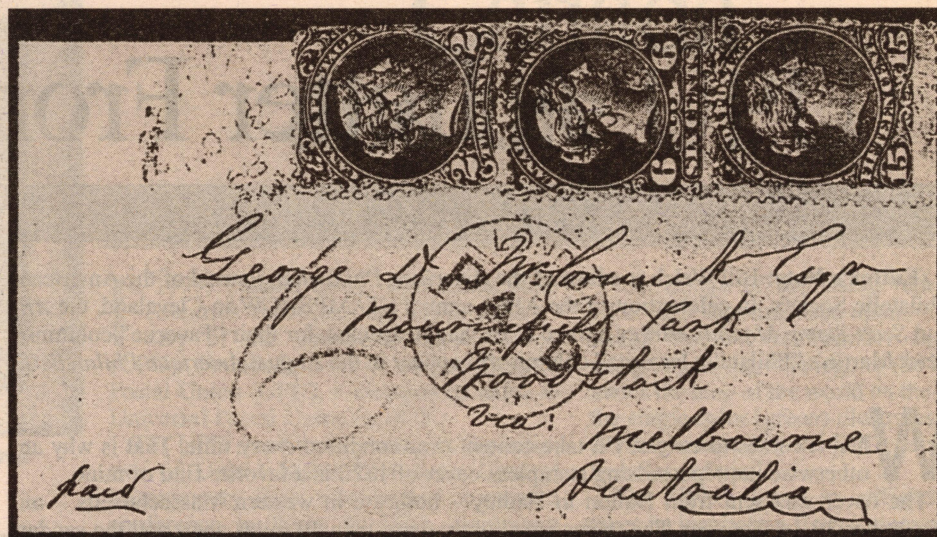 CANADA POSTAGE
2 TWO CENTS 2
CANADA POSTAGE
6 SIX CENTS 6
CANADA POSTAGE
15 FIFTEEN CENTS 15
PAID
George D McCormick Esqr
Park
Woodstock
via: Melbourne
Australia
paid